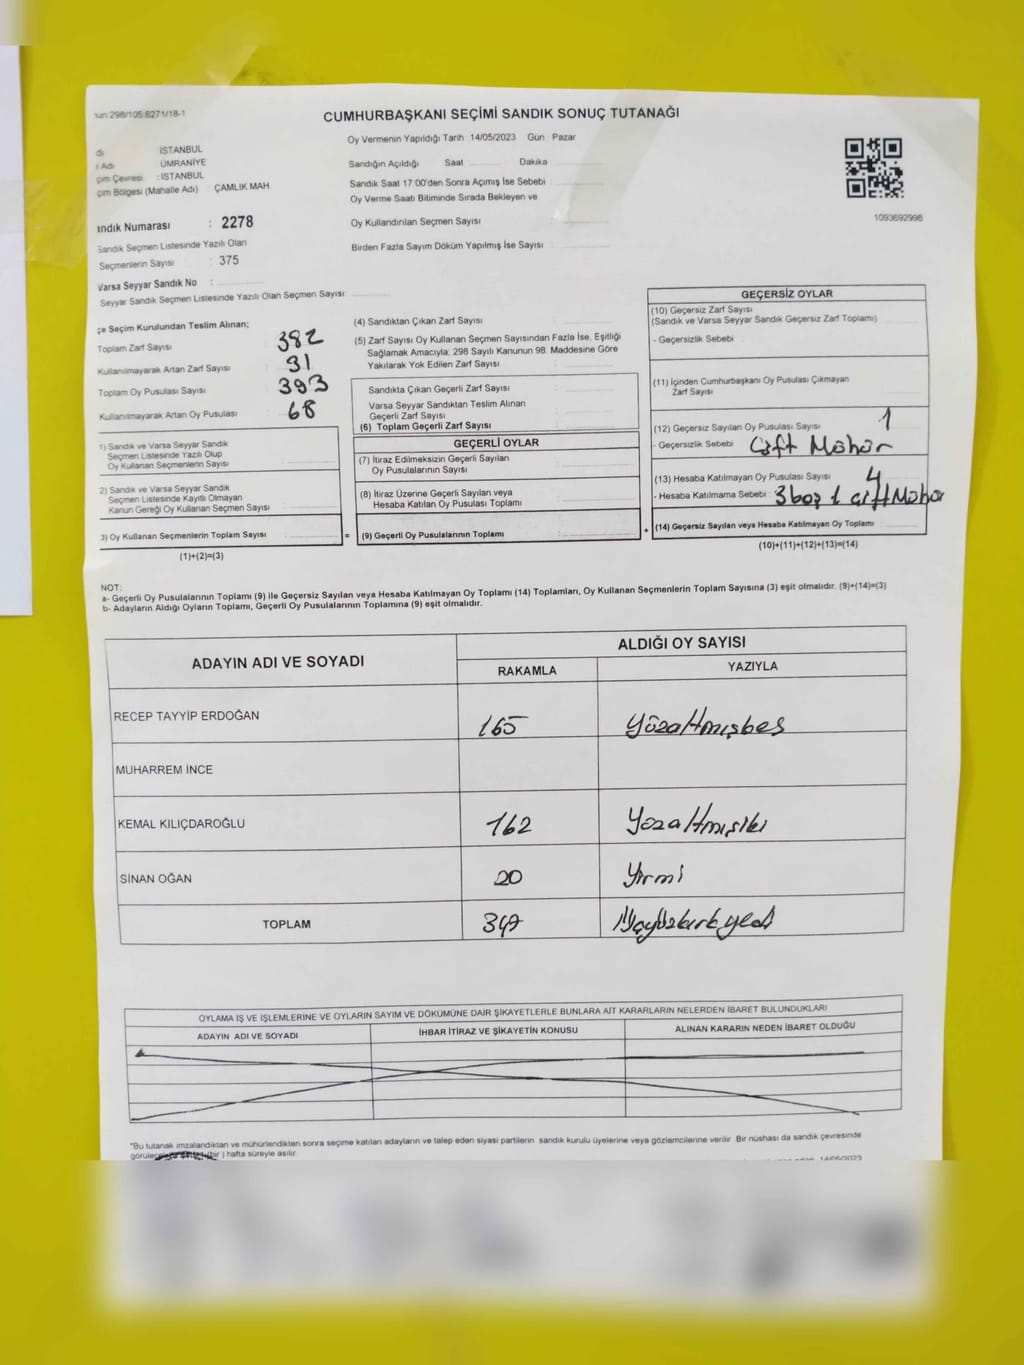 CUMHURBAŞKANI SEÇİMİ SANDIK SONUÇ TUTANAĞI
Oy Vermenin Yapıldığı Tarih 14/05/2023 Gün Pazar
İSTANBUL
ÜMRANİYE
çim Çevresi : İSTANBUL
çim Bölgesi (Mahalle Adı) : ÇAMLIK MAH.
Sandığın Açıldığı Saat Dakika
Sandık Saat 17:00'den Sonra Açımış İse Sebebi :
Oy Verme Saati Bitiminde Sırada Bekleyen ve
Oy Kullandırılan Seçmen Sayısı
Birden Fazla Sayım Döküm Yapılmış İse Sayısı :
1093692998
ındık Numarası : 2278
Sandık Seçmen Listesinde Yazılı Olan
Seçmenlerin Sayısı : 375
Varsa Seyyar Sandık No :
Seyyar Sandık Seçmen Listesinde Yazılı Olan Seçmen Sayısı:
çe Seçim Kurulundan Teslim Alınan;
Toplam Zarf Sayısı 382
Kullanılmayarak Artan Zarf Sayısı 31
Toplam Oy Pusulası Sayısı 393
Kullanılmayarak Artan Oy Pusulası 68
1) Sandık ve Varsa Seyyar Sandık
Seçmen Listesinde Yazılı Olup
Oy Kullanan Seçmenlerin Sayısı :
2) Sandık ve Varsa Seyyar Sandık
Seçmen Listesinde Kayıtlı Olmayan
Kanun Gereği Oy Kullanan Seçmen Sayısı :
3) Oy Kullanan Seçmenlerin Toplam Sayısı :
(1)+(2)=(3)
(4) Sandıktan Çıkan Zarf Sayısı
(5) Zarf Sayısı Oy Kullanan Seçmen Sayısından Fazla İse, Eşitliği
Sağlamak Amacıyla; 298 Sayılı Kanunun 98. Maddesine Göre
Yakılarak Yok Edilen Zarf Sayısı :
Sandıkta Çıkan Geçerli Zarf Sayısı :
Varsa Seyyar Sandıktan Teslim Alınan
Geçerli Zarf Sayısı :
(6) Toplam Geçerli Zarf Sayısı
GEÇERLİ OYLAR
(7) İtiraz Edilmeksizin Geçerli Sayılan
Oy Pusulalarının Sayısı :
(8) İtiraz Üzerine Geçerli Sayılan veya
Hesaba Katılan Oy Pusulası Toplamı :
= (9) Geçerli Oy Pusulalarının Toplamı : +
GEÇERSİZ OYLAR
(10) Geçersiz Zarf Sayısı
(Sandık ve Varsa Seyyar Sandık Geçersiz Zarf Toplamı)
- Geçersizlik Sebebi :
(11) İçinden Cumhurbaşkanı Oy Pusulası Çıkmayan
Zarf Sayısı :
(12) Geçersiz Sayılan Oy Pusulası Sayısı 1
- Geçersizlik Sebebi : Çift Mühür
(13) Hesaba Katılmayan Oy Pusulası Sayısı 4
- Hesaba Katılmama Sebebi : 3 boş 1 çift Mühür
(14) Geçersiz Sayılan veya Hesaba Katılmayan Oy Toplamı
(10)+(11)+(12)+(13)=(14)
NOT:
a- Geçerli Oy Pusulalarının Toplamı (9) ile Geçersiz Sayılan veya Hesaba Katılmayan Oy Toplamı (14) Toplamları, Oy Kullanan Seçmenlerin Toplam Sayısına (3) eşit olmalıdır. (9)+(14)=(3)
b- Adayların Aldığı Oyların Toplamı, Geçerli Oy Pusulalarının Toplamına (9) eşit olmalıdır.
ADAYIN ADI VE SOYADI
ALDIĞI OY SAYISI
RAKAMLA YAZIYLA
RECEP TAYYİP ERDOĞAN 165 Yüzaltmışbeş
MUHARREM İNCE
KEMAL KILIÇDAROĞLU 162 Yüzaltmışiki
SİNAN OĞAN 20 Yirmi
TOPLAM 347 Üçyüzkırkyedi
OYLAMA İŞ VE İŞLEMLERİNE VE OYLARIN SAYIM VE DÖKÜMÜNE DAİR ŞİKAYETLERLE BUNLARA AİT KARARLARIN NELERDEN İBARET BULUNDUKLARI
ADAYIN ADI VE SOYADI İHBAR İTİRAZ VE ŞİKAYETİN KONUSU ALINAN KARARIN NEDEN İBARET OLDUĞU
*Bu tutanak imzalandıktan ve mühürlendikten sonra seçime katılan adayların ve talep eden siyasi partilerin sandık kurulu üyelerine veya gözlemcilerine verilir. Bir nüshası da sandık çevresinde
(bir) hafta süreyle asılır.
14/05/2023